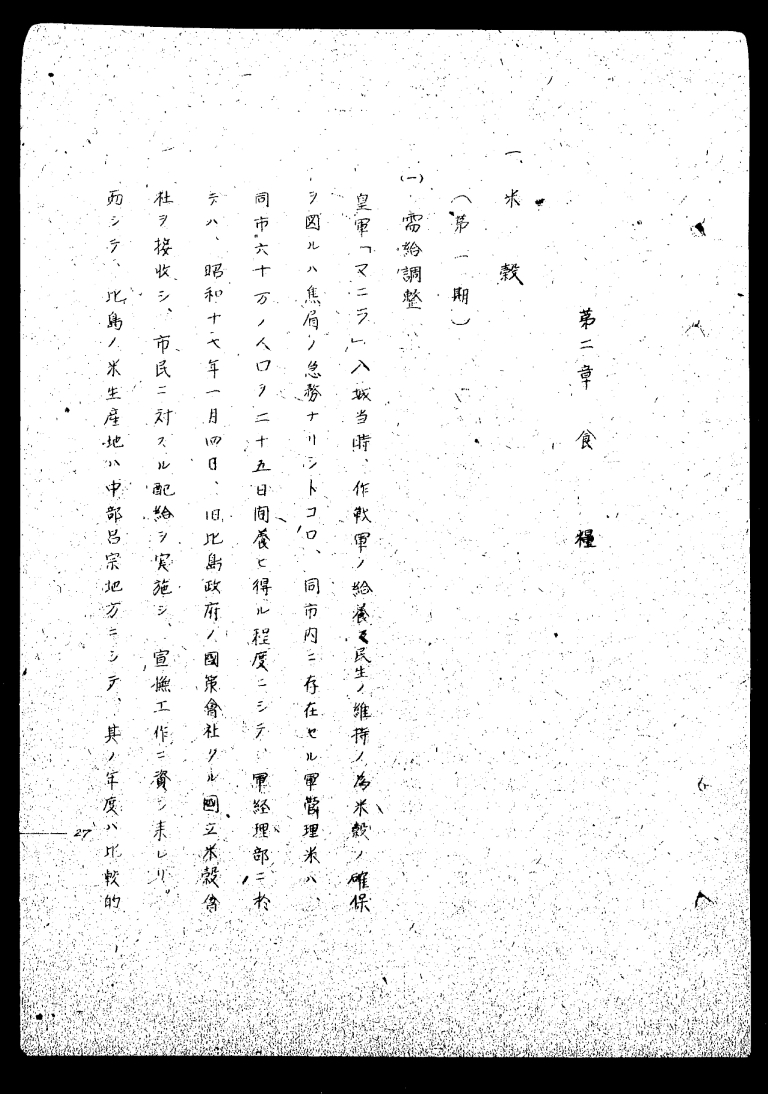 第二章　食糧
一、米穀
（第一期）
(一)　需給調整
皇軍「マニラ」入城当時、作戦軍ノ給養及民生ノ維持ノ為米穀ノ確保
ヲ図ルハ焦眉ノ急務ナリシトコロ、同市内ニ存在セル軍管理米ハ、
同市六十万ノ人口ヲ二十五日間養ヒ得ル程度ニシテ、軍経理部ニ於
テハ、昭和十七年一月四日、旧比島政府ノ國策會社タル國立米穀會
社ヲ接收シ、市民ニ対スル配給ヲ実施シ、宣撫工作ニ資シ来レリ。
而シテ、比島ノ米生産地ハ中部呂宋地方ニシテ、其ノ年度ハ比較的
27